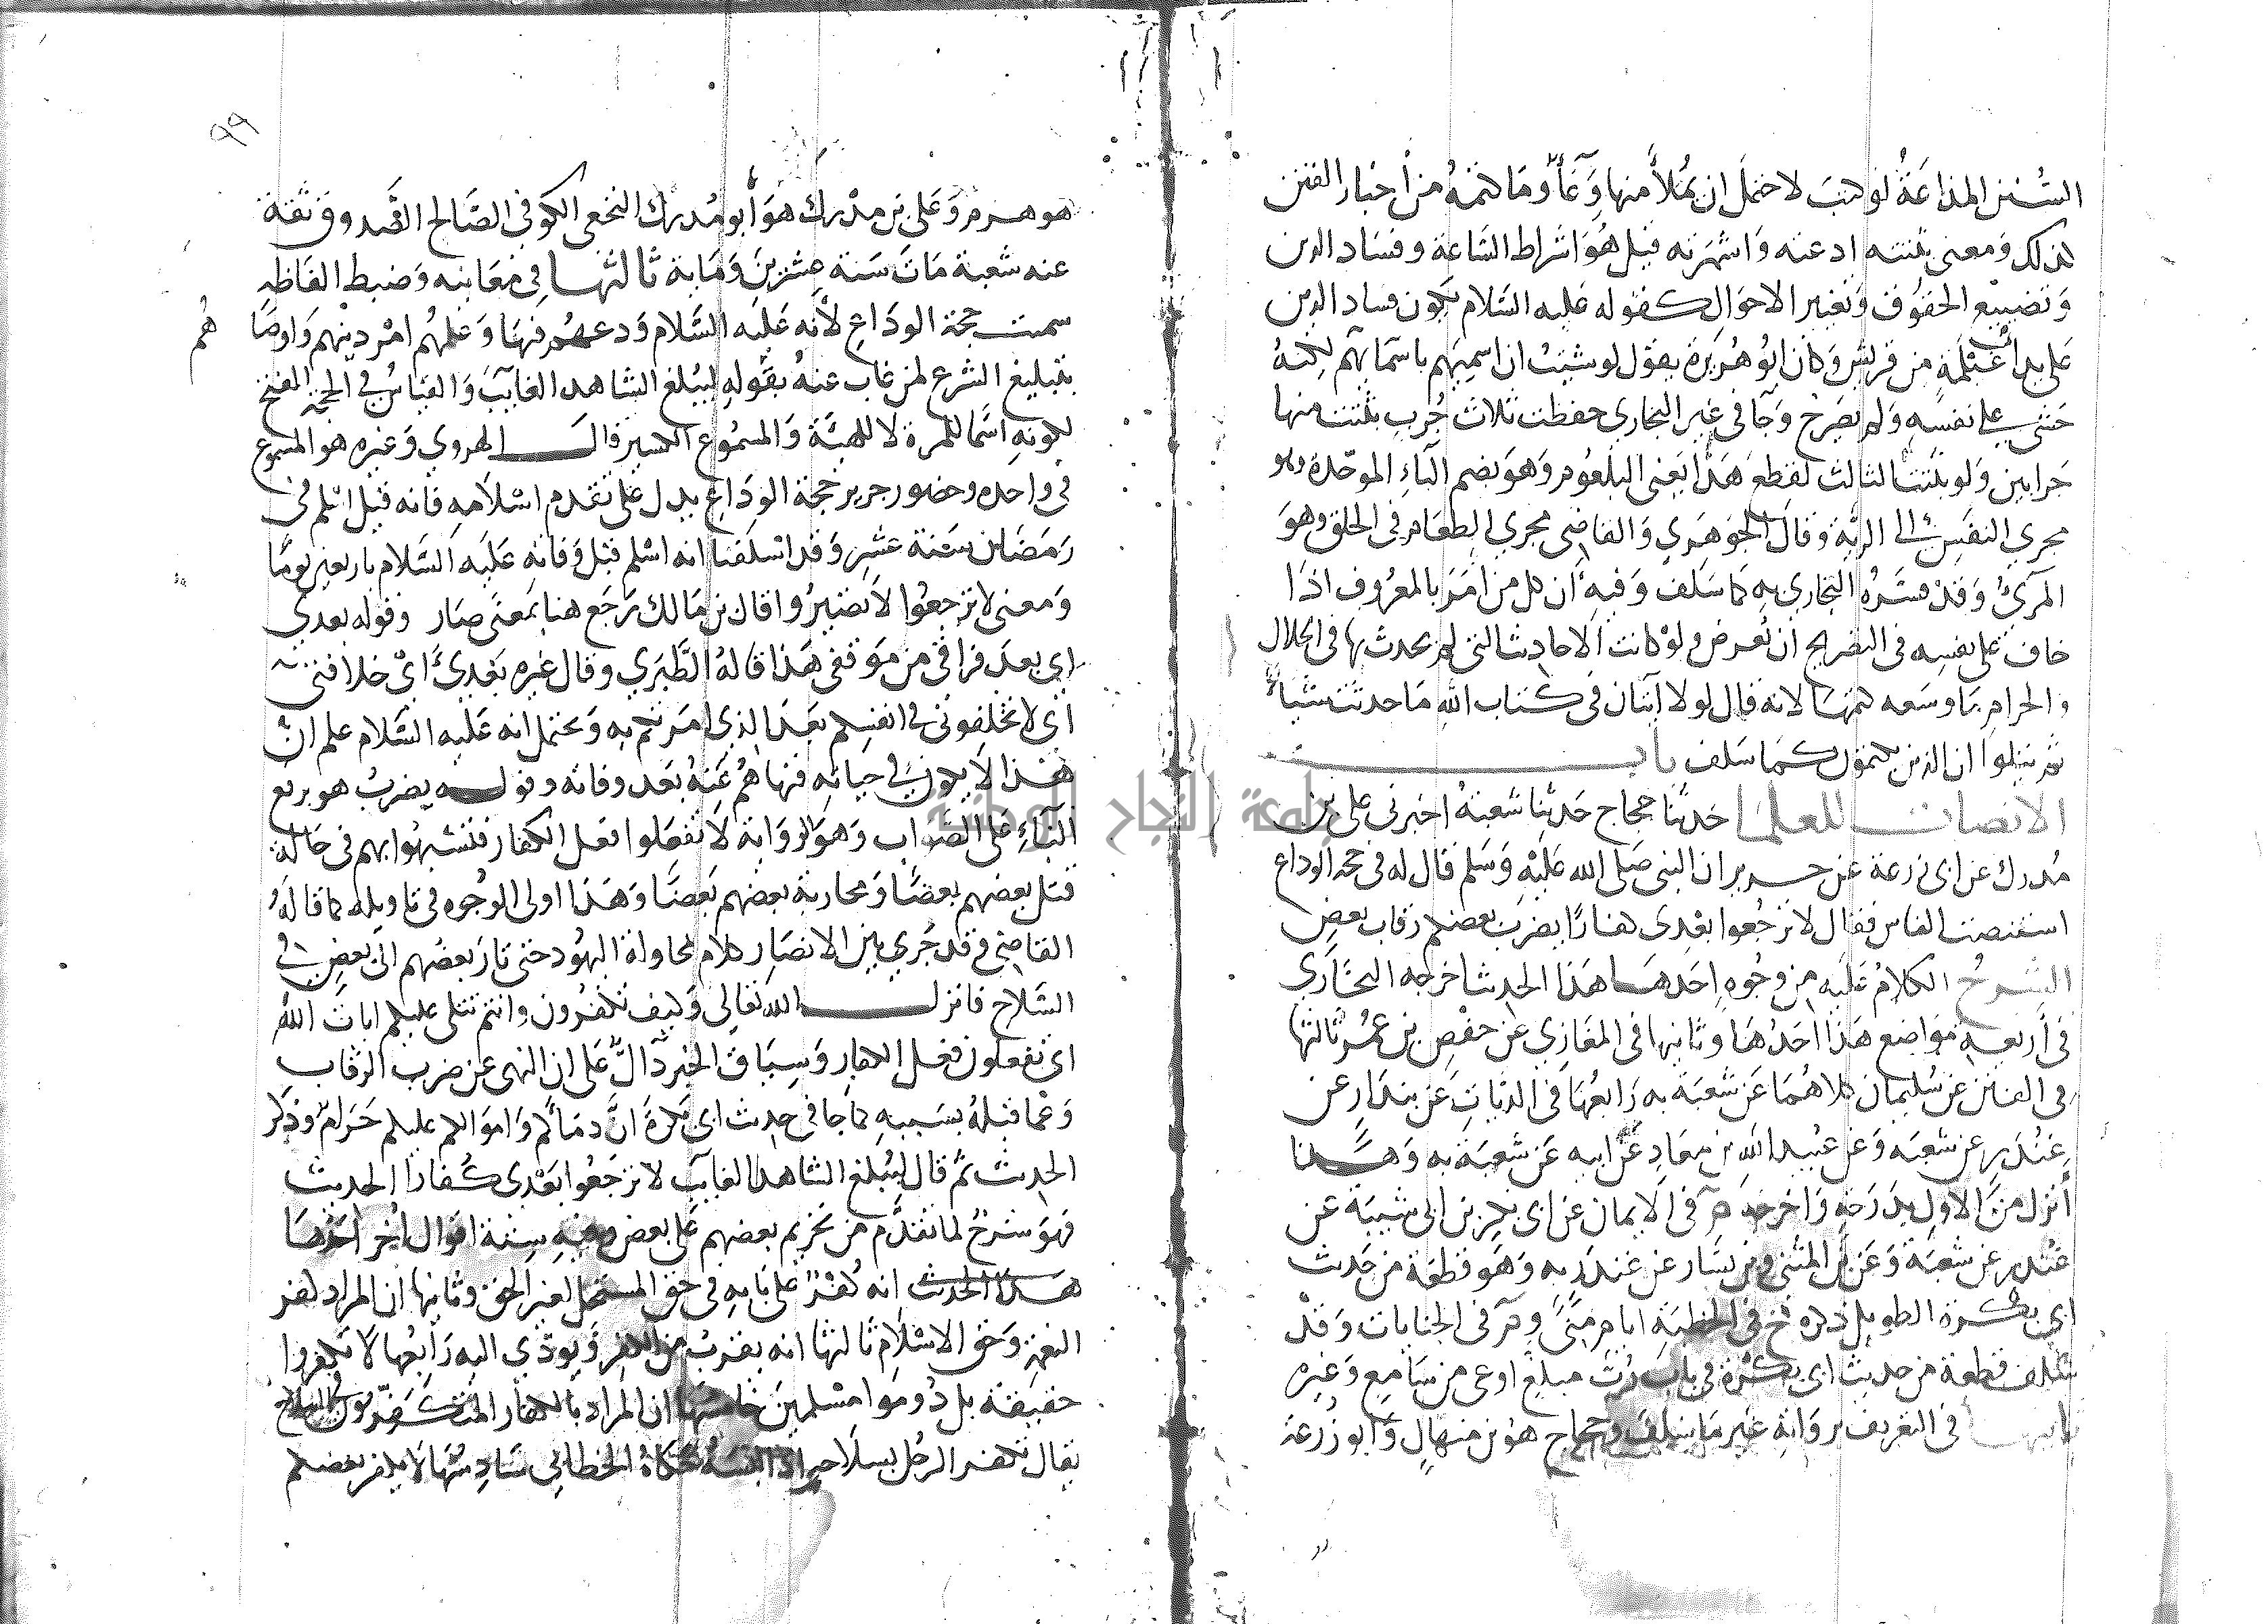 السنن المذاعة لو كتبت لاحتمل ان يملأ منها وعاء وما كتمه من اخبار الفتن
كذلك ومعنى بثثته اذعته واشهرته قيل هو اشراط الساعة وفساد الدين
وتضييع الحقوق وتغيير الاحوال كقوله عليه السلام يكون فساد الدين
على يدي اغيلمة من قريش وكان ابو هريرة يقول لو شئت ان اسميهم باسمائهم لكنه
خشي على نفسه ولم يصرح وجا في غير البخاري حفظت ثلاث جرب بثثت منها
جرابين ولو بثثت الثالث لقطع هذا يعني البلعوم وهو بضم الباء الموحدة وهو
مجرى النفس الى الرية وقال الجوهري والقاضي مجرى الطعام في الحلق وهو
المرئ وقد فسره البخاري به كما سلف وفيه ان كل من امر بالمعروف اذا
خاف على نفسه في التصريح ان يعرض ولو كانت الاحاديث التي لم يحدث بها في الحلال
والحرام ما وسعه كتمها لانه قال لولا آيتان في كتاب الله ما حدثت شيأ
ثم يتلوا ان الذين يكتمون كما سلف باب
الانصات للعلما حدثنا حجاج حدثنا شعبة اخبرني علي بن
مدرك عن ابي زرعة عن جرير ان النبي صلى الله عليه وسلم قال له في حجة الوداع
استنصت الناس فقال لا ترجعوا بعدي كفارا يضرب بعضكم رقاب بعض
الشرح الكلام عليه من وجوه احدها هذا الحديث اخرجه البخاري
في اربعة مواضع هذا احدها وثانيها في المغازي عن حفص بن عمر ثالثها
في الفتن عن سليمان كلاهما عن شعبة به رابعها في الديات عن بندار عن
غندر عن شعبة وعن عبيد الله بن معاذ عن ابيه عن شعبة به وهنا
انزل من الاول بدرجة واخرجه م في الايمان عن ابي بكر بن ابي شيبة عن
غندر عن شعبة وعن ابن المثنى وابن بشار عن غندر به وهو قطعة من حديث
ابي بكرة الطويل ذكره خ في الخطبة ايام منى وم في الجنايات وقد
سلف قطعة من حديث ابي بكرة في باب رب مبلغ اوعى من سامع وغيره
ثانيها في التعريف برواته غير ما سلف وحجاج هو بن منهال وابو زرعة
٩٩
هو هرم وعلي بن مدرك هو أبو مدرك النخعي الكوفي الصالح الصدوق ثقة
عنه شعبة مات سنة عشرين ومايه ثالثها في معانيه وضبط الفاظه
سميت حجة الوداع لأنه عليه السلام ودعهم فيها وعلمهم امر دينهم واوصا
هم
بتبليغ الشرع لمن غاب عنه بقوله ليبلغ الشاهد الغايب والقياس في الحجة الفتح
لكونه اسما للمرة لا للهيئة والمسموع الكسر قال الهروي وغيره هو المسموع
في واحده وحضور جرير حجة الوداع يدل على تقدم اسلامه فانه قيل اسلم في
رمضان سنة عشر وقد اسلفنا انه اسلم قبل وفاته عليه السلام باربعين يوما
ومعنى لا ترجعوا لا تصيروا قال بن مالك رجع هنا بمعنى صار وقوله بعدي
اي بعد فراقي من موقفي هذا قاله الطبري وقال غيره بعدي اي خلافي
اي لا تخلفوني في انفسكم بعد الذي امرتكم به ويحتمل انه عليه السلام علم ان
هذا لا يكون في حياته فنهاهم عنه بعد وفاته وقوله يضرب هو برفع
الباء على الصواب وهو الرواية لا تفعلوا فعل الكفار فتشبهوا بهم في حالة
قتل بعضهم بعضا ومحاربة بعضهم بعضا وهذا اولى الوجوه في تاويله كما قاله
القاضي وقد جرى بين الانصار كلام لمحاولة اليهود حتى ثار بعضهم الى بعض في
السلاح فانزل الله تعالى وكيف تكفرون وانتم تتلى عليكم ايات الله
اي تفعلون فعل الكفار وسياق الخبر دال على ان النهي عن ضرب الرقاب
وعما قبله بسببه كما جا في حديث ابي بكرة ان دماكم واموالكم عليكم حرام وذكر
الحديث ثم قال ليبلغ الشاهد الغايب لا ترجعوا بعدي كفارا الحديث
فهو شرح لما تقدم من تحريم بعضهم على بعض وفيه ستة اقوال اخر احدها
هذا الحديث انه كفر على بابه في حق المستحل لغير الحق وثانيها ان المراد كفر
النعمة وحق الاسلام ثالثها انه يقرب من الكفر ويودي اليه رابعها لا تكفروا
حقيقة بل دوموا مسلمين خامسها ان المراد بالكفار المتكفرون بالسلاح
يقال تكفر الرجل بسلاحه اذا لبسه حكاه الخطابي سادسها لا يكفر بعضكم
جامعة النجاح الوطنية